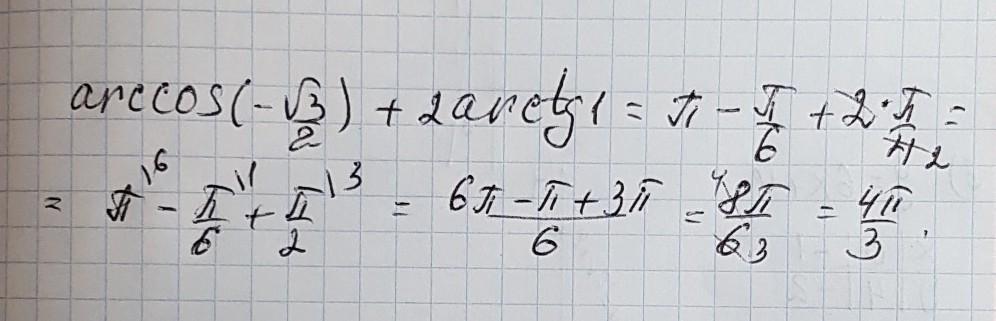 arccos(-√3/2) + 2arctg1 = π - π/6 + 2·π/4 2 =
= π\6 - π/6\1 + π/2\3 = 6π-π+3π/6 = 4 8π/6 3 = 4π/3.